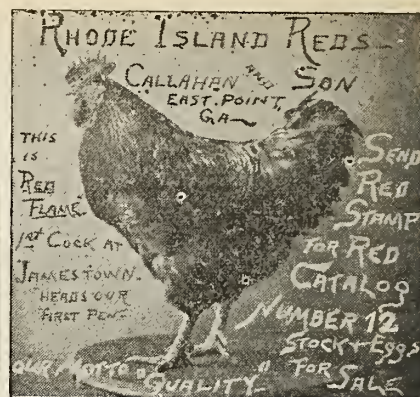 RHODE ISLAND REDS
CALLAHAN AND SON
EAST POINT,
GA
THIS
IS
RED
FLAME.
1st COCK AT
JAMESTOWN.
HEADS OUR
FIRST PEN
SEND
RED
STAMP
FOR RED
CATALOG
NUMBER 12
STOCK + EGGS
FOR SALE
OUR MOTTO "QUALITY"